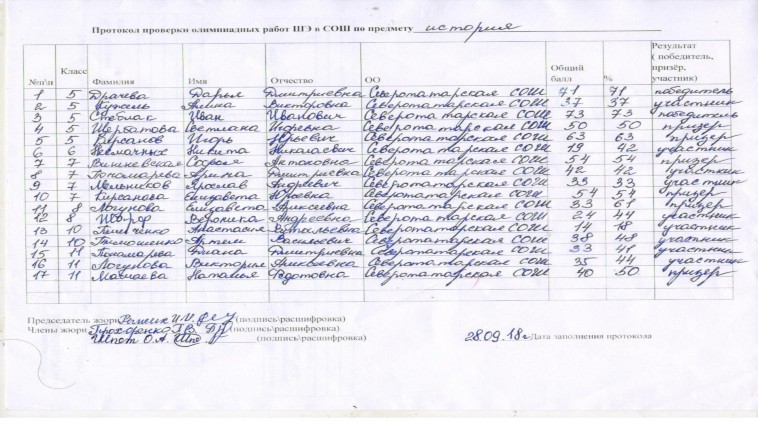 Протокол проверки олимпиадных работ ШЭ в СОШ по предмету история
№п\п Класс Фамилия Имя Отчество ОО Общий балл % Результат ( победитель, призёр, участник)
1 5 Драчева Дарья Дмитриевна Северотатарская СОШ 71 71 победитель
2 5 Алина Викторовна Северотатарская СОШ 37 37 участник
3 5 Стеблак Иван Иванович Северотатарская СОШ 73 73 победитель
4 5 Щербатова Светлана Игоревна Северотатарская СОШ 50 50 призер
5 5 Кирсанов Игорь Юрьевич Северотатарская СОШ 63 63 призер
6 6 Немачных Никита Николаевич Северотатарская СОШ 19 42 участник
7 7 Вишневская Софья Антоновна Северотатарская СОШ 54 54 призер
8 7 Пономарева Арина Дмитриевна Северотатарская СОШ 42 42 участник
9 7 Мельников Ярослав Андреевич Северотатарская СОШ 33 33 участник
10 7 Кирсанова Елизавета Юрьевна Северотатарская СОШ 54 54 призер
11 8 Логунова Елизавета Алексеевна Северотатарская СОШ 33 61 призер
12 8 Шварф Вероника Андреевна Северотатарская СОШ 24 44 участник
13 10 Гильченко Анастасия Витальевна Северотатарская СОШ 14 18 участник
14 10 Тимошенко Артем Васильевич Северотатарская СОШ 38 48 участник
15 11 Пономарева Диана Дмитриевна Северотатарская СОШ 33 41 участник
16 11 Логунова Виктория Алексеевна Северотатарская СОШ 35 44 участник
17 11 Маячева Наталья Федотовна Северотатарская СОШ 40 50 призер
Председатель жюри И.М. (подпись\расшифровка)
Члены жюри Прохоренко Т.В. (подпись\расшифровка)
Шпот О.А. (подпись\расшифровка) 28.09.18г Дата заполнения протокола